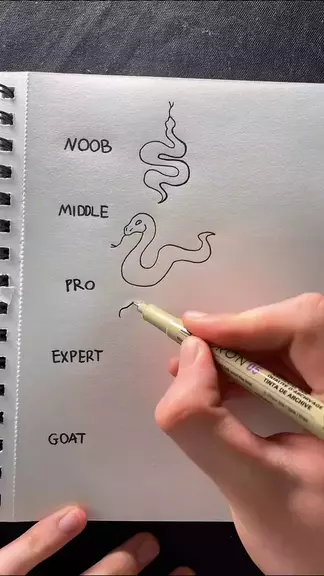 NOOB
MIDDLE
PRO
EXPERT
GOAT
05
TINTA DE ARCHIVE